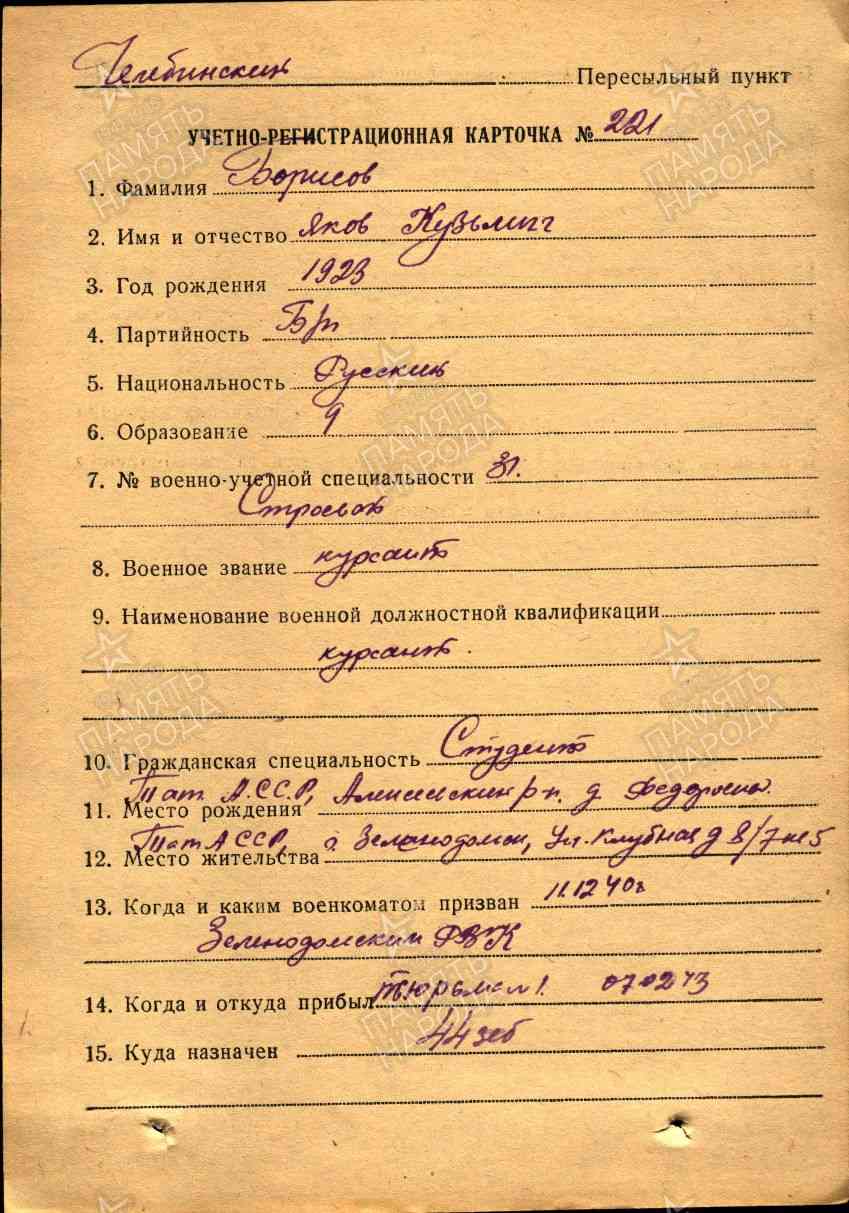 Челябинский Пересыльный пункт
УЧЕТНО-РЕГИСТРАЦИОННАЯ КАРТОЧКА № 221
1. Фамилия Борисов
2. Имя и отчество Яков Кузьмич
3. Год рождения 1923
4. Партийность Б/п
5. Национальность Русский
6. Образование 9
7. № военно-учетной специальности 31.
Строевой
8. Военное звание курсант
9. Наименование военной должностной квалификации
курсант.
10. Гражданская специальность Студент
Тат. А.ССР, р-н. д.
11. Место рождения
ТатАССР, Ул. Клубная д 8/7 кв 5
12. Место жительства
13. Когда и каким военкоматом призван 11.12 40г
Зеленодомским РВК
14. Когда и откуда прибыл тюрьма 1. 07 02 43
15. Куда назначен 44 зсб
ПАМЯТЬ НАРОДА